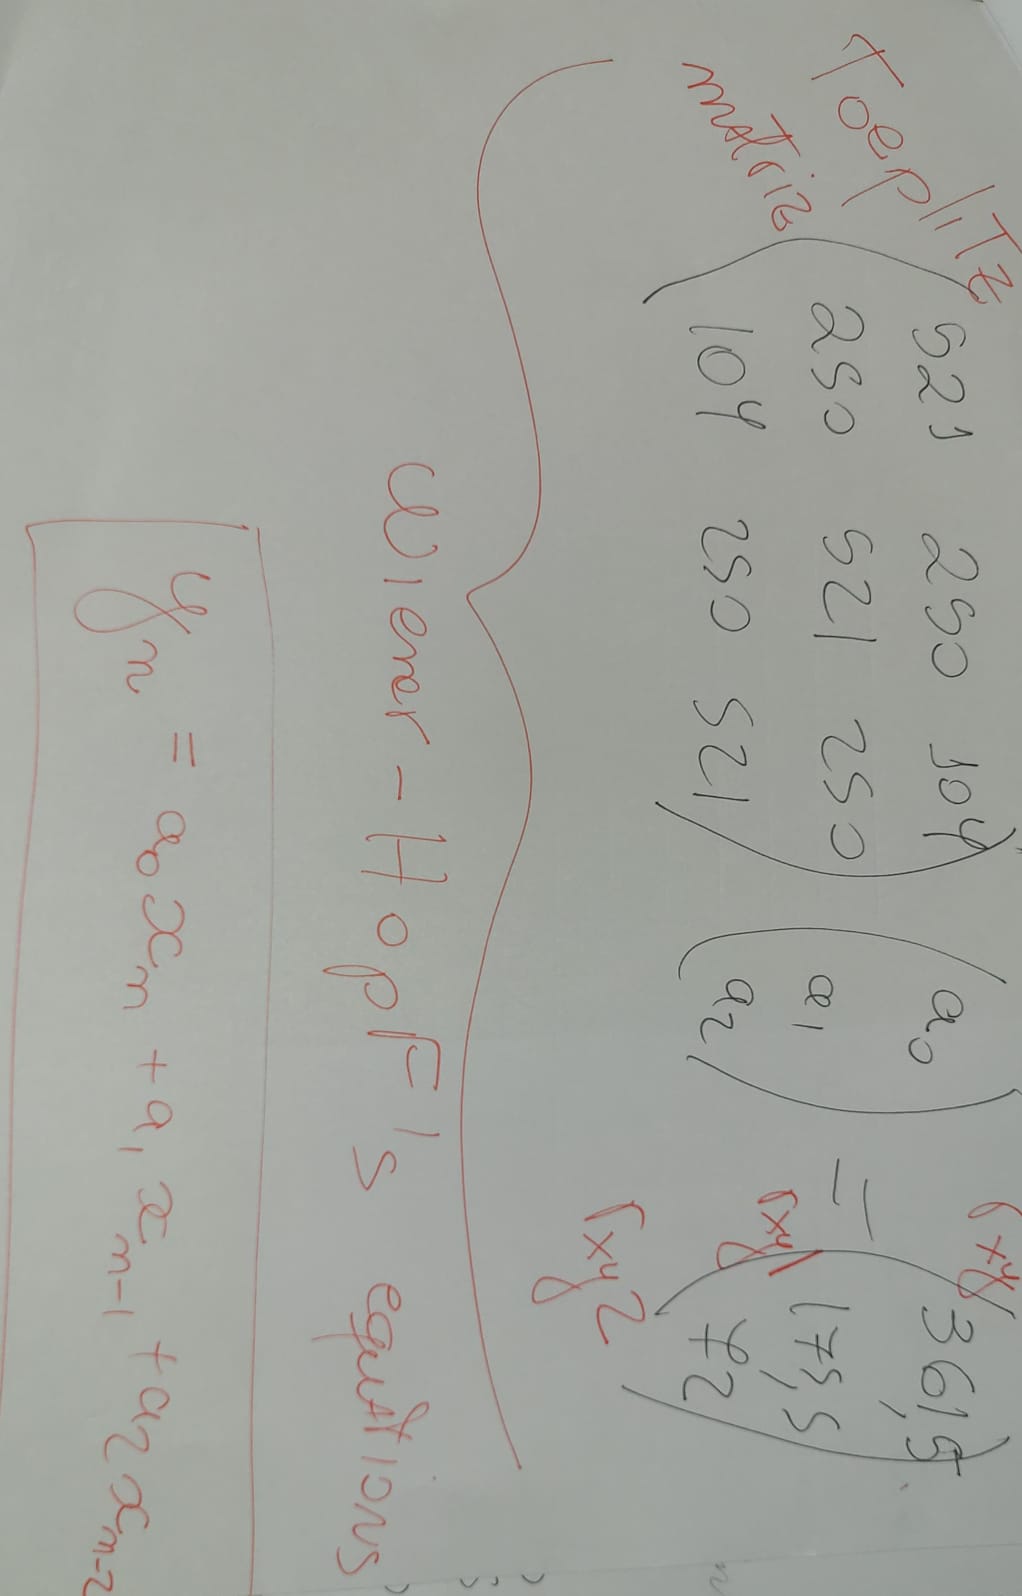 Toeplitz
matriz
521 250 104
250 521 250
104 250 521
a0
a1
a2
=
rxy
rxy1
rxy2
361,5
173,5
72
Wiener-Hopf's equations
yn = a0xn + a1xn-1 + a2xn-2